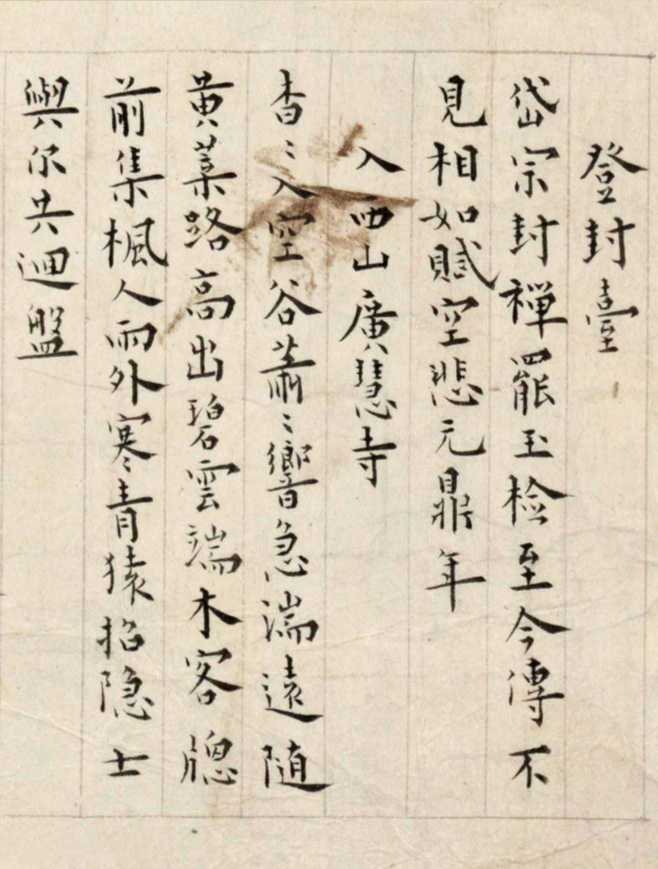 登封臺
岱宗封禪罷玉檢至今傳不
見相如賦空悲元鼎年
入西山廣慧寺
杳〻入空谷蕭〻響急湍遠隨
黄葉路高出碧雲端木客窻
前集楓人雨外寒青猿招隐士
與尔共迴盤